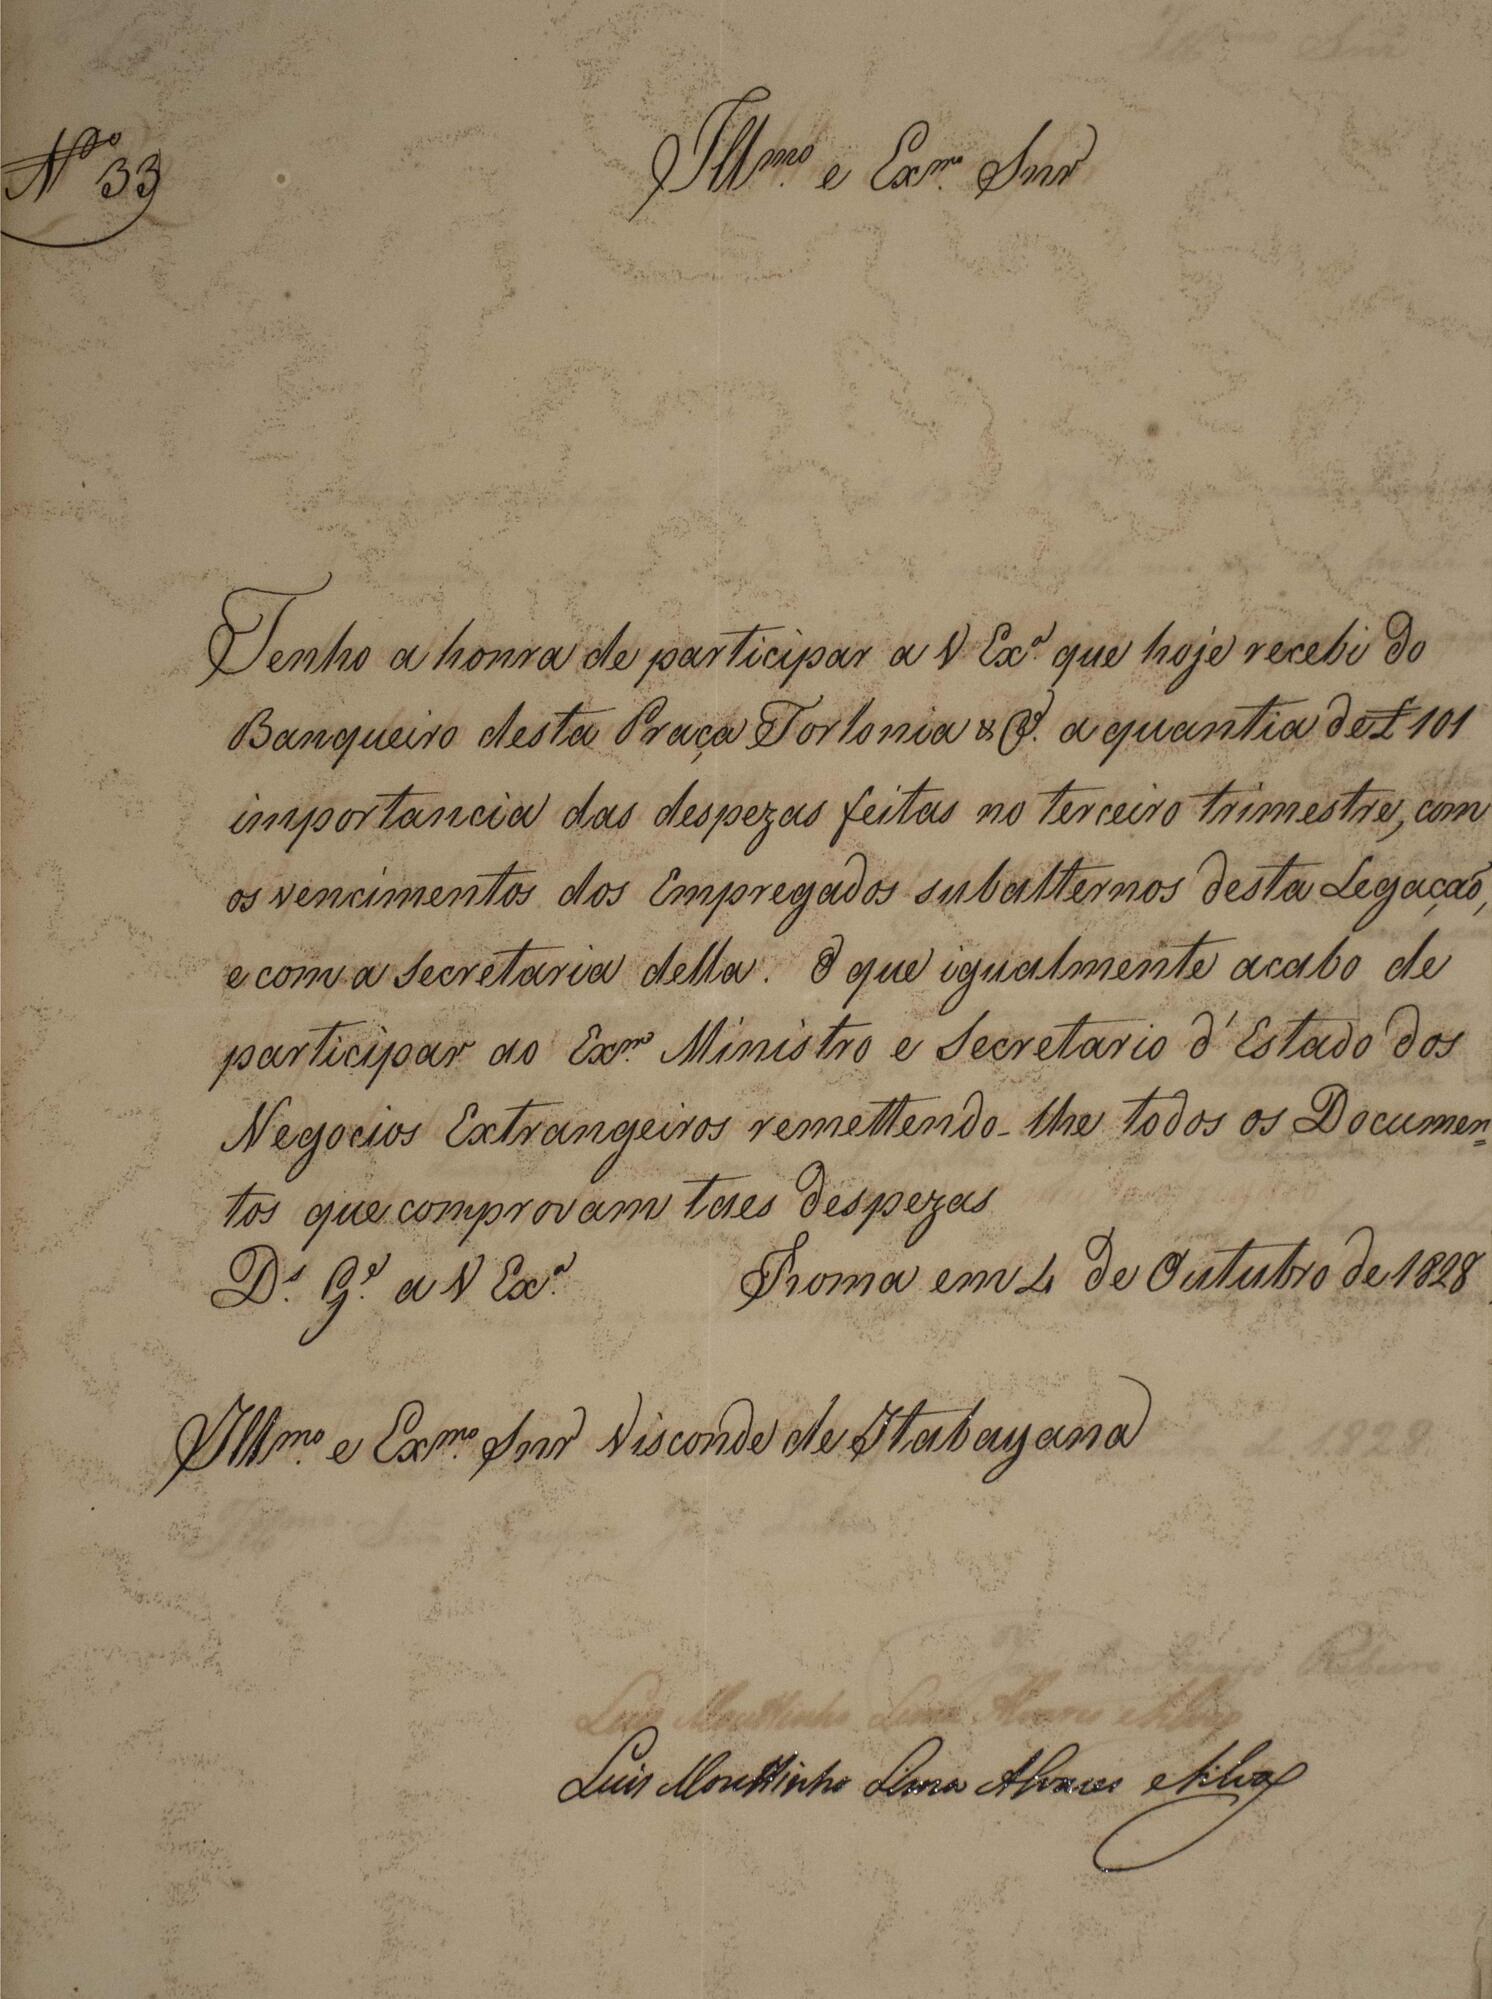 Nº 33
Illmo. e Exmo. Snr
Tenho a honra de participar a V Exª. que hoje recebi do
Banqueiro desta Praça Torlonia & Cª. a quantia de £ 101
importancia das despezas feitas no terceiro trimestre, com
os vencimentos dos Empregados subalternos desta Legação,
e com a Secretaria della. O que igualmente acabo de
participar ao Exmo. Ministro e Secretario d'Estado dos
Negocios Extrangeiros remettendo-lhe todos os Documen=
tos que comprovam taes despezas
Ds. Ge. a V Exª. Roma em 4 de Outubro de 1828
Illmo. e Exmo. Snr Visconde de Itabayana
Luis Mouttinho Lima Alvares e Silva